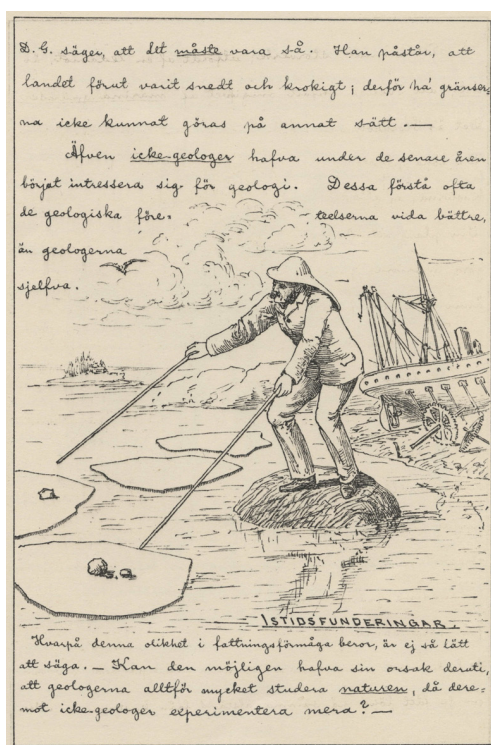 D. G. säger, att det måste vara så. Han påstår, att
landet förut varit snedt och krokigt; derför ha' gränser=
na icke kunnat göras på annat sätt.—
Äfven icke-geologer hafva under de senare åren
börjat intressera sig för geologi. Dessa förstå ofta
de geologiska före= teelserna vida bättre,
än geologerna
sjelfva.
ISTIDSFUNDERINGAR.
Hvarpå denna olikhet i fattningsförmåga beror, är ej så lätt
att säga. — Kan den möjligen hafva sin orsak deruti,
att geologerna alltför mycket studera naturen, då dere=
mot icke-geologer experimentera mera?—